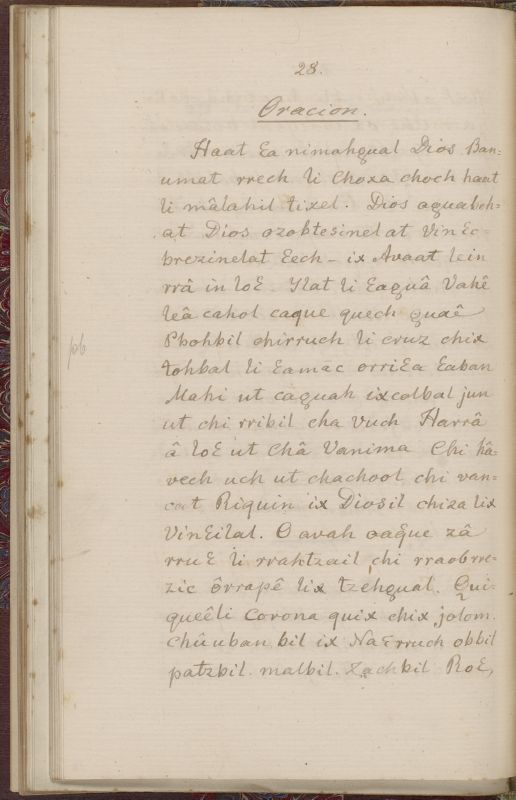 28.
Oracion.
Haat Ɛa nimahgual Dios Ban=
umat rrech li Choxa choch haat
li mâlahil tixel. Dios aguabeh=
at Dios ozobtesinel at VinƐc=
brezinelat Ɛech - ix Avaat lein
rrâ in loƐ. Ylat li Ɛaguâ Vahê
leâ cahol caque quech guaê
Phohbil chirruch li cruz chix
tohbal li Ɛamac orriƐa Ɛaban
Mahi ut caguah ixcolbal jun
ut chi rribil cha vuch Harrâ
â loƐ ut Châ Vanima Chi Kâ=
vech uch ut chachool chi van=
cat Riquin ix Diosil chiza lix
VinƐilal. O avah oaque zâ
rruƐ li rrahtzail chi rraobrre=
zic ôrrapê lix tzehgual. Qui=
queêli Corona quix chix jolom.
Chûuban bil ix NaƐrruch obbil
patzbil. malbil. Zachbil RoƐ,
pob